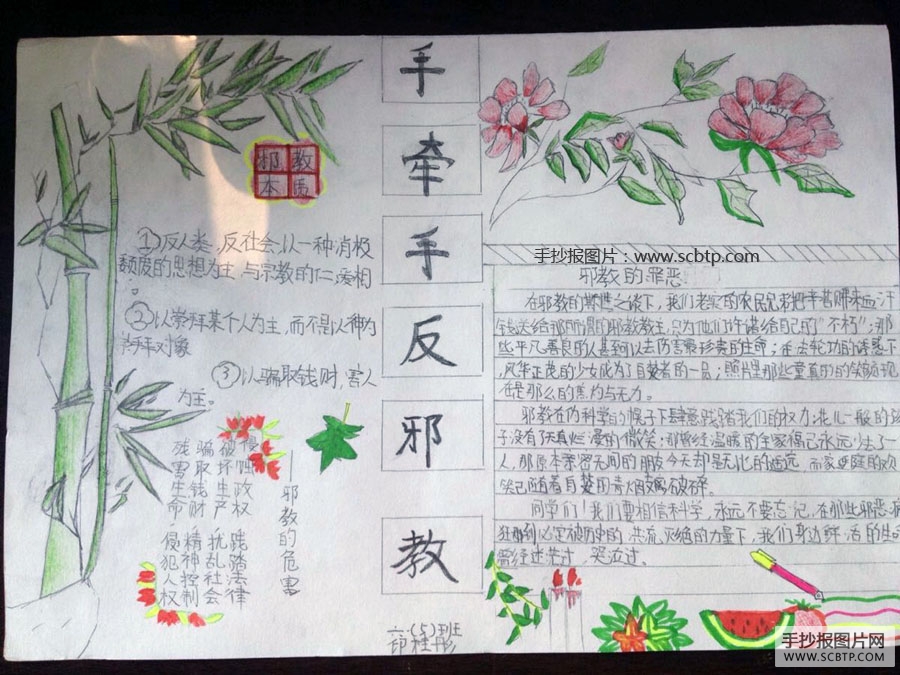 手
牵
手
反
邪
教
邪教
本质
①反人类、反社会、以一种消极
颓废的思想为主,与宗教的仁爱相
②以崇拜某个人为主,而不是以神为
崇拜对象
③以骗取钱财,害人
为主。
邪教的危害
侵蚀政权
破坏生产
骗取钱财
残害生命
践踏法律
扰乱社会
精神控制
侵犯人权
六(5)班
手抄报图片:www.scbtp.com
邪教的罪恶
在邪教的 之谈下,我们老实的农民兄弟把辛苦赚来的血汗
钱送给那所谓的邪教教主,只为他们许诺给自己的"不朽";那
些平凡善良的人甚至可以去伤害最珍贵的生命;在法轮功的诱惑下
,风华正茂的少女成为了自焚者的一员;照片里那些童真的笑颜现
在是那么的焦灼与无力。
邪教在伪科学的幌子下肆意践踏我们的权力:花儿一般的孩
子没有了天真烂漫的微笑;那曾经温暖的全家福已永远少了一
人,那原本亲密无间的朋友今天却是无比的遥远,而家庭的欢
笑已随着自焚的青烟 破碎。
同学们!我们要相信科学,永远不要忘记,在那些邪恶
必定被历史的洪流灭绝的力量下,我们身边鲜活的生命
曾经迷茫过、哭泣过。
手抄报图片网
WWW.SCBTP.COM